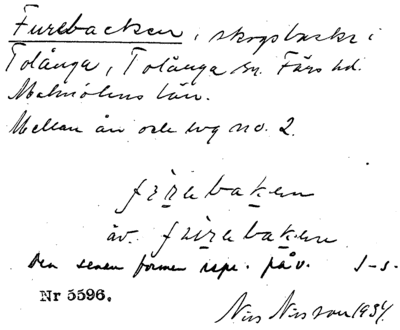 Furebacken, skogsbacke i
Tolånga, Tolånga sn. Färs hd.
Malmöhus län.
Mellan ån och väg no. 2.
fùrebaken
äv. fùrebaken
Den senare formen uppt. på v.
Nr 5596.
Nils Nilsson 1934.